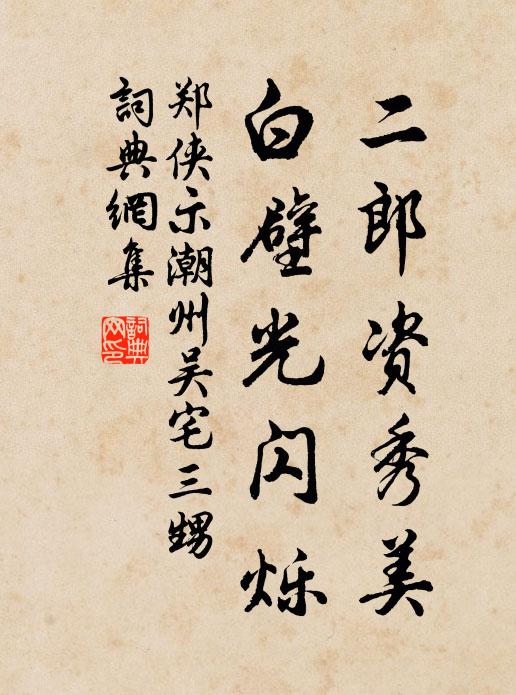 二郎资秀美
白璧光闪烁
郑侠示潮州吴宅三甥
詞典網集
詞典网印